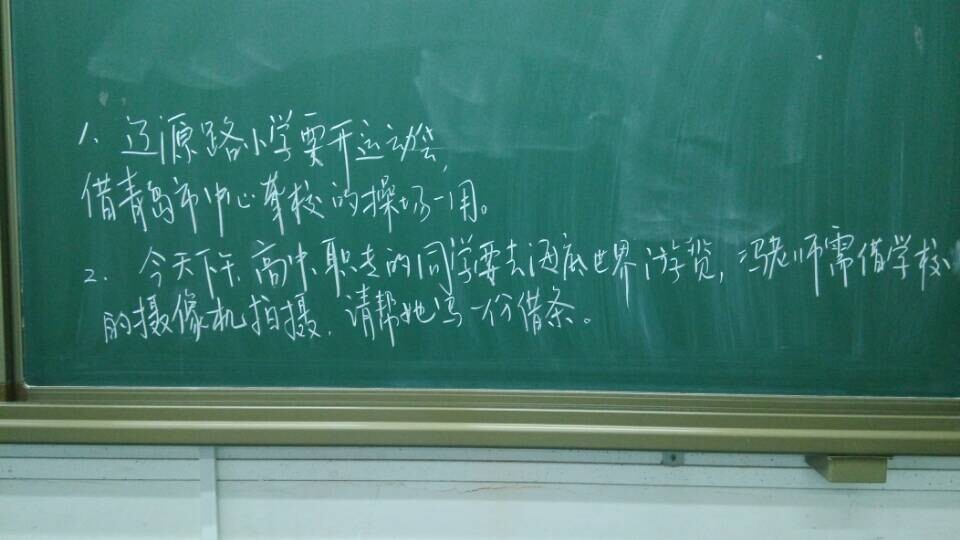 1、辽源路小学要开运动会,
借青岛市中心聋校的操场一用。
2、今天下午,高中、职专的同学要去海底世界游览,冯老师需借学校
的摄像机拍摄,请帮她写一份借条。